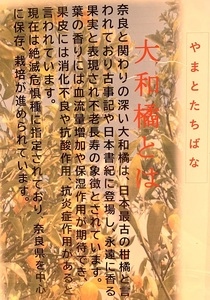 やまとたちばな
大和橘とは
奈良と関わりの深い大和橘は、日本最古の柑橘と言
われており古事記や日本書紀に登場し、永遠に香る
果実と表現され不老長寿の象徴とされています。
葉の香りには血流量増加や保湿作用が期待でき、
果皮には消化不良や抗酸作用、抗炎症作用があると
言われています。
現在は絶滅危惧種に指定されており、奈良県を中心
に保存、栽培が進められています。